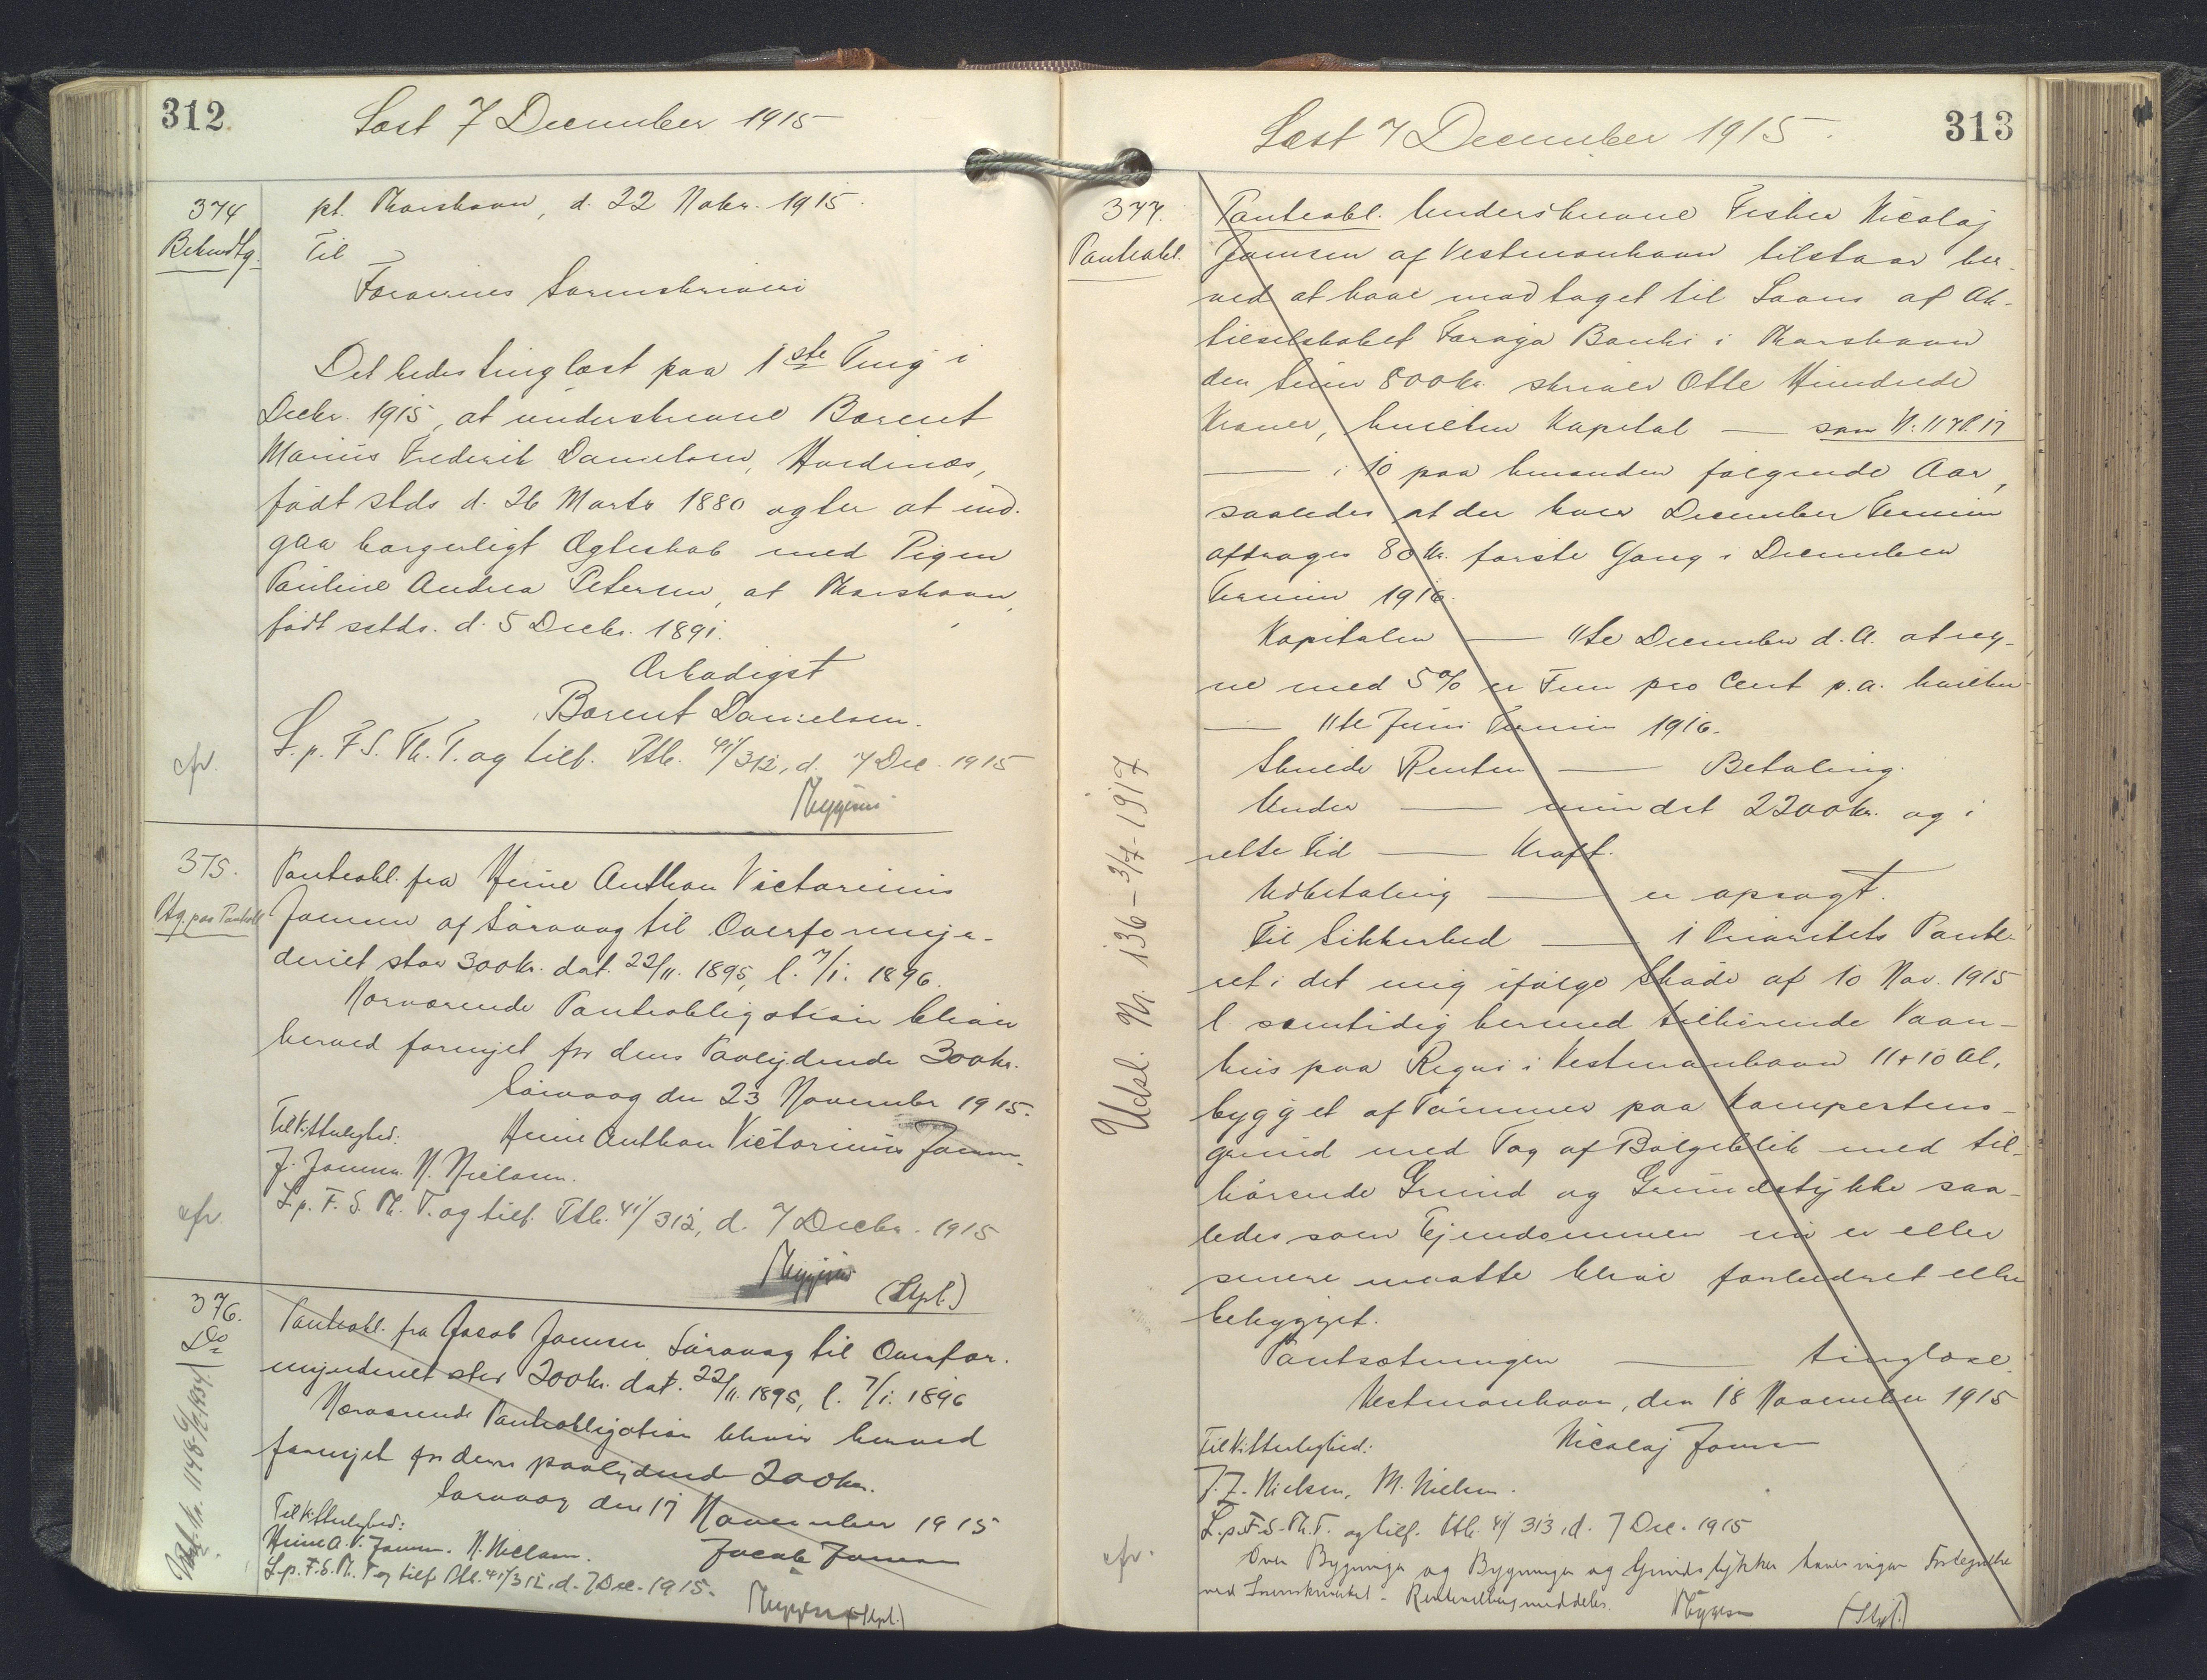 312
Læst 7 December 1915
374
Bekendtg.
pt. Thorshavn, d. 22 Nobr. 1915.
Til
Færøernes Sorenskriveri
Det bedes tinglæst paa 1ste Ting i
Decbr. 1915, at underskrevne Barent
Marius Frederik Danielsen, Hvidenæs,
født stds d. 26 Marts 1880 agter at ind-
gaa borgerligt Ægteskab med Pigen
Pauline Andrea Petersen, af Thorshavn,
født sstds. d. 5 Decbr. 1891.
Ærbødigst
Barent Danielsen.
L. p. F. S. Th. T. og tilf. Ptb. 41/312, d. 7 Dec. 1915
cfr.
375.
Ptg. paa Pantobl.
Panteobl. fra Heine Anthon Victorinus
Joensen af Sörvaag til Overformyn-
deriet stor 300 kr. dat. 22/11. 1895, l. 7/1. 1896.
Nærværende Panteobligation bliver
herved fornyet for dens Paalydende 300 kr.
Sörvaag den 23 November 1915.
Til Vitterlighed:
Heine Anthon Victorinus Joensen
J. Joensen. N. Nielsen.
L. p. F. S. Th. T. og tilf. Ptb. 41/312, d. 7 Decbr. 1915
cfr.
(Stpl.)
376.
Do
Panteobl. fra Jacob Joensen Sörvaag til Overfor-
mynderiet stor 200 kr. dat. 22/11. 1895, l. 7/1. 1896
Nærværende Panteobligation bliver herved
fornyet for dens paalydende 200 kr.
Sörvaag den 17 November 1915
Til Vitterlighed:
Heine A. V. Joensen. N. Nielsen.
Jacob Joensen
L. p. F. S. Th. T. og tilf. Ptb. 41/312, d. 7 Dec. 1915.
(Stpl.)
313
Læst 7 December 1915.
377.
Panteobl.
Panteobl. Underskrevne Fisker Nicolaj
Joensen af Vestmanhavn tilstaar her-
ved at have modtaget til Laans af Ak-
tieselskabet Færøya Banki i Thorshavn
den Sum 800 kr. skriver Otte Hundrede
Kroner, hvilken Kapital — som N: 11
— i 10 paa hinanden følgende Aar,
saaledes at der hver December Termin
afdrages 80 kr. første Gang i December
Termin 1916.
Kapitalen — 11te December d. A. at reg-
ne med 5% er Fem pro Cent p. a. hvilken
— 11te Juni Termin 1916.
Skulde Renten — Betaling.
Under — mindst 2200 kr. og i
rette Tid — Kraft.
Udbetaling — er opsagt.
Til Sikkerhed — 1 Prioritets Pante-
ret i det mig ifølge Skøde af 10 Nov. 1915
l. samtidig hermed tilhørende Vaan-
hus paa Rigui i Vestmanhavn 11 x 10 Al.
bygget af Tömmer paa Kampestens-
grund med Tag af Bölgeblik med til-
hörende Grund og Grundstykke saa-
ledes som Ejendommen nu er eller
senere maatte blive forbedret eller
bebygget.
Pantsætningen — tinglæse.
Vestmanhavn, den 18 November 1915
Til Vitterlighed:
Nicolaj Joensen
J. J. Nielsen, M. Nielsen.
L. p. F. S. Th. T. og tilf. Ptb. 41/313, d. 7 Dec. 1915
Over Bygninger og Bygninger og Grundstykker haves ingen Fortegnelse
ved Sorenskriveriet.
(Stpl.)
cfr.
Udsl. Nr. 136 - 3/7 - 1917